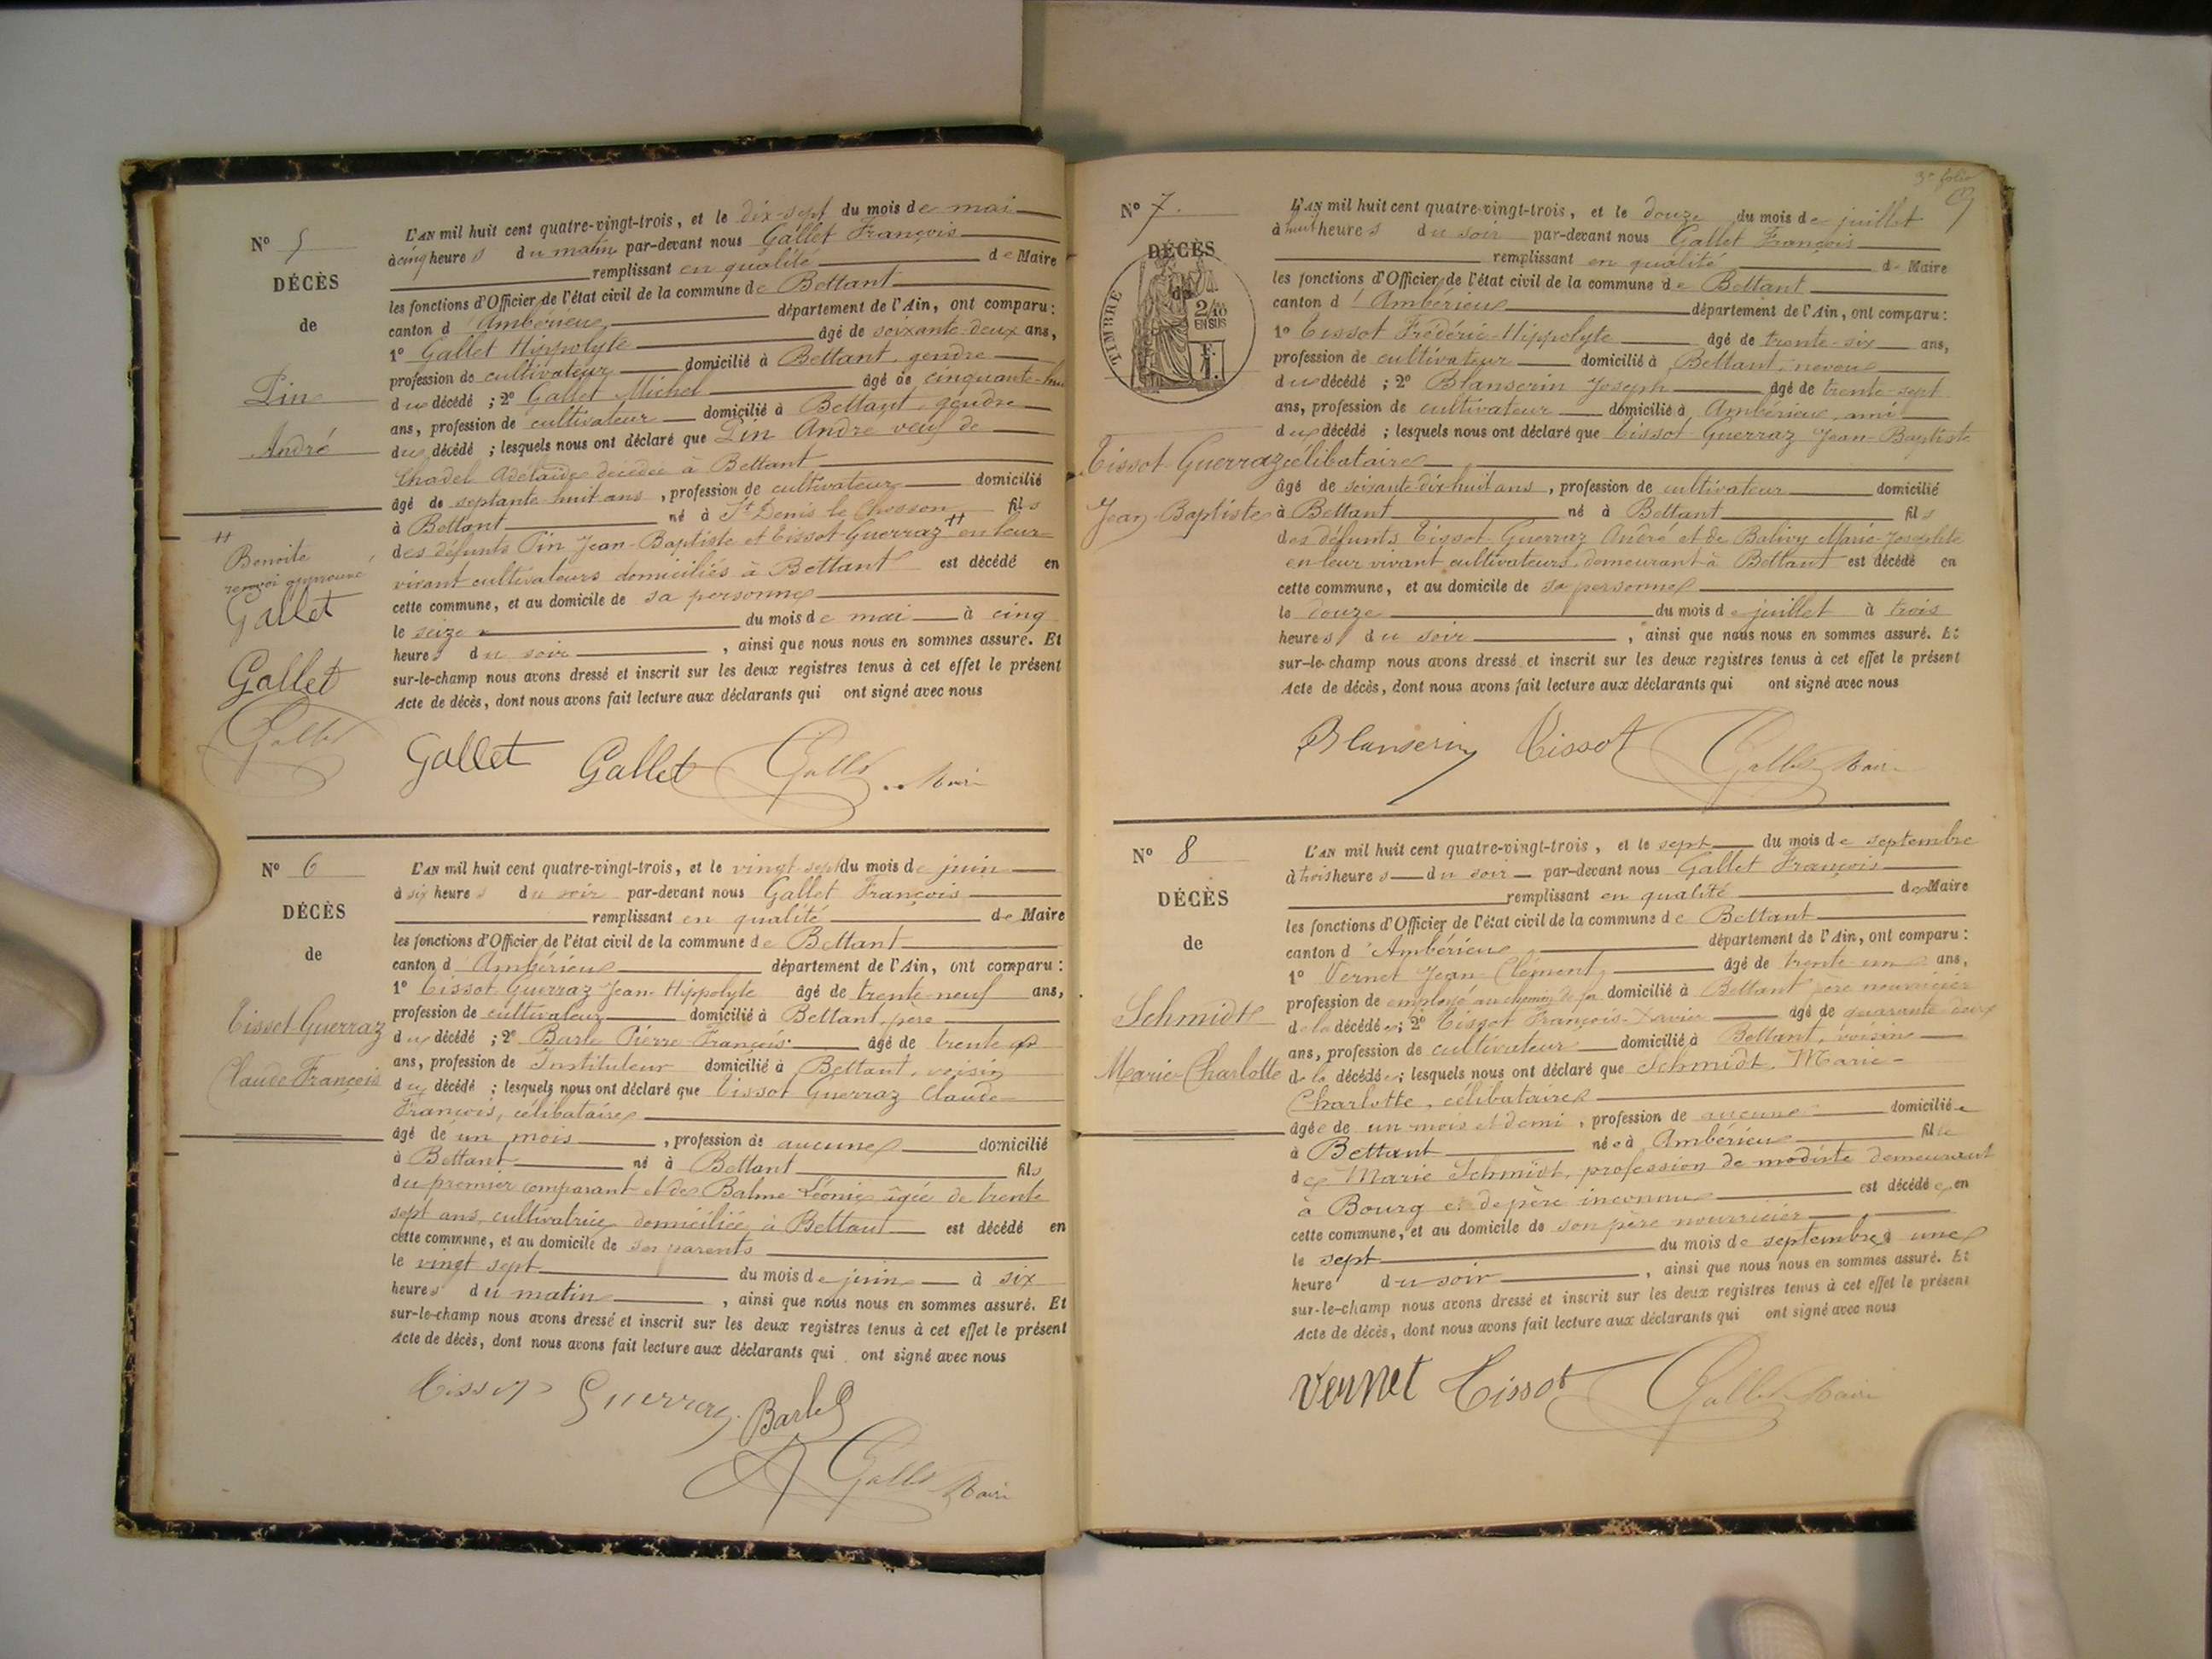 N° 5
DÉCÈS
de
Pin
André
++
Benoite
renvoi approuvé
Gallet
Gallet
Gallet
L'AN mil huit cent quatre-vingt-trois, et le dix-sept du mois de mai
à cinq heures du matin par-devant nous Gallet François
remplissant en qualité de Maire
les fonctions d'Officier de l'état civil de la commune de Bettant
canton d'Ambérieux département de l'Ain, ont comparu:
1° Gallet Hippolyte âgé de soixante-deux ans,
profession de cultivateur domicilié à Bettant, gendre
du décédé ; 2° Gallet Michel âgé de cinquante-huit
ans, profession de cultivateur domicilié à Bettant, gendre
du décédé ; lesquels nous ont déclaré que Pin André veuf de
Chadel Adélaïde décédée à Bettant
âgé de septante huit ans, profession de cultivateur domicilié
à Bettant né à St Denis le Chosson fils
des défunts Pin Jean-Baptiste et Tissot-Guerraz ++ en leur
vivant cultivateurs domiciliés à Bettant est décédé en
cette commune, et au domicile de sa personne
le seize du mois de mai à cinq
heures du soir, ainsi que nous nous en sommes assuré. Et
sur-le-champ nous avons dressé et inscrit sur les deux registres tenus à cet effet le présent
Acte de décès, dont nous avons fait lecture aux déclarants qui ont signé avec nous
Gallet Gallet Gallet Maire
N° 6
DÉCÈS
de
Tissot-Guerraz
Claude François
L'AN mil huit cent quatre-vingt-trois, et le vingt sept du mois de juin
à six heures du soir par-devant nous Gallet François
remplissant en qualité de Maire
les fonctions d'Officier de l'état civil de la commune de Bettant
canton d'Ambérieux département de l'Ain, ont comparu:
1° Tissot-Guerraz Jean-Hippolyte âgé de trente-neuf ans,
profession de cultivateur domicilié à Bettant, père
du décédé ; 2° Barle Pierre-François âgé de trente
ans, profession de Instituteur domicilié à Bettant, voisin
du décédé ; lesquels nous ont déclaré que Tissot Guerraz Claude
François, célibataire
âgé de un mois, profession de aucune domicilié
à Bettant né à Bettant fils
du premier comparant et de Balme Léonie âgée de trente
sept ans, cultivatrice domiciliée à Bettant est décédé en
cette commune, et au domicile de ses parents
le vingt sept du mois de juin à six
heures du matin, ainsi que nous nous en sommes assuré. Et
sur-le-champ nous avons dressé et inscrit sur les deux registres tenus à cet effet le présent
Acte de décès, dont nous avons fait lecture aux déclarants qui ont signé avec nous
Tissot Guerraz Barle
Gallet Maire
3e folio
N° 7.
DÉCÈS
de
TIMBRE
2/10
EN SUS
F.
1.
Tissot-Guerraz
Jean-Baptiste
L'AN mil huit cent quatre-vingt-trois, et le douze du mois de juillet
à huit heures du soir par-devant nous Gallet François
remplissant en qualité de Maire
les fonctions d'Officier de l'état civil de la commune de Bettant
canton d'Ambérieux département de l'Ain, ont comparu:
1° Tissot Frédéric-Hippolyte âgé de trente-six ans,
profession de cultivateur domicilié à Bettant, neveu
du décédé ; 2° Blanserin Joseph âgé de trente-sept
ans, profession de cultivateur domicilié à Ambérieux, ami
du décédé ; lesquels nous ont déclaré que Tissot-Guerraz Jean-Baptiste
célibataire
âgé de soixante dix-huit ans, profession de cultivateur domicilié
à Bettant né à Bettant fils
des défunts Tissot-Guerraz André et de Balivy Marie-Josephte
en leur vivant cultivateurs demeurant à Bettant est décédé en
cette commune, et au domicile de sa personne
le douze du mois de juillet à trois
heures du soir, ainsi que nous nous en sommes assuré. Et
sur-le-champ nous avons dressé et inscrit sur les deux registres tenus à cet effet le présent
Acte de décès, dont nous avons fait lecture aux déclarants qui ont signé avec nous
Blanserin Tissot Gallet Maire
N° 8
DÉCÈS
de
Schmidt
Marie Charlotte
L'AN mil huit cent quatre-vingt-trois, et le sept du mois de septembre
à trois heures du soir par-devant nous Gallet François
remplissant en qualité de Maire
les fonctions d'Officier de l'état civil de la commune de Bettant
canton d'Ambérieux département de l'Ain, ont comparu:
1° Vernet Jean-Clément âgé de trente-un ans,
profession de employé au chemin de fer domicilié à Bettant père nourricier
de la décédée ; 2° Tissot François-Xavier âgé de quarante-deux
ans, profession de cultivateur domicilié à Bettant, voisin
de la décédée ; lesquels nous ont déclaré que Schmidt Marie-
Charlotte, célibataire
âgée de un mois et demi, profession de aucune domiciliée
à Bettant née à Ambérieux fille
de Marie Schmidt, profession de modiste demeurant
à Bourg et de père inconnu est décédée en
cette commune, et au domicile de son père nourricier
le sept du mois de septembre à une
heure du soir, ainsi que nous nous en sommes assuré. Et
sur-le-champ nous avons dressé et inscrit sur les deux registres tenus à cet effet le présent
Acte de décès, dont nous avons fait lecture aux déclarants qui ont signé avec nous
Vernet Tissot Gallet Maire